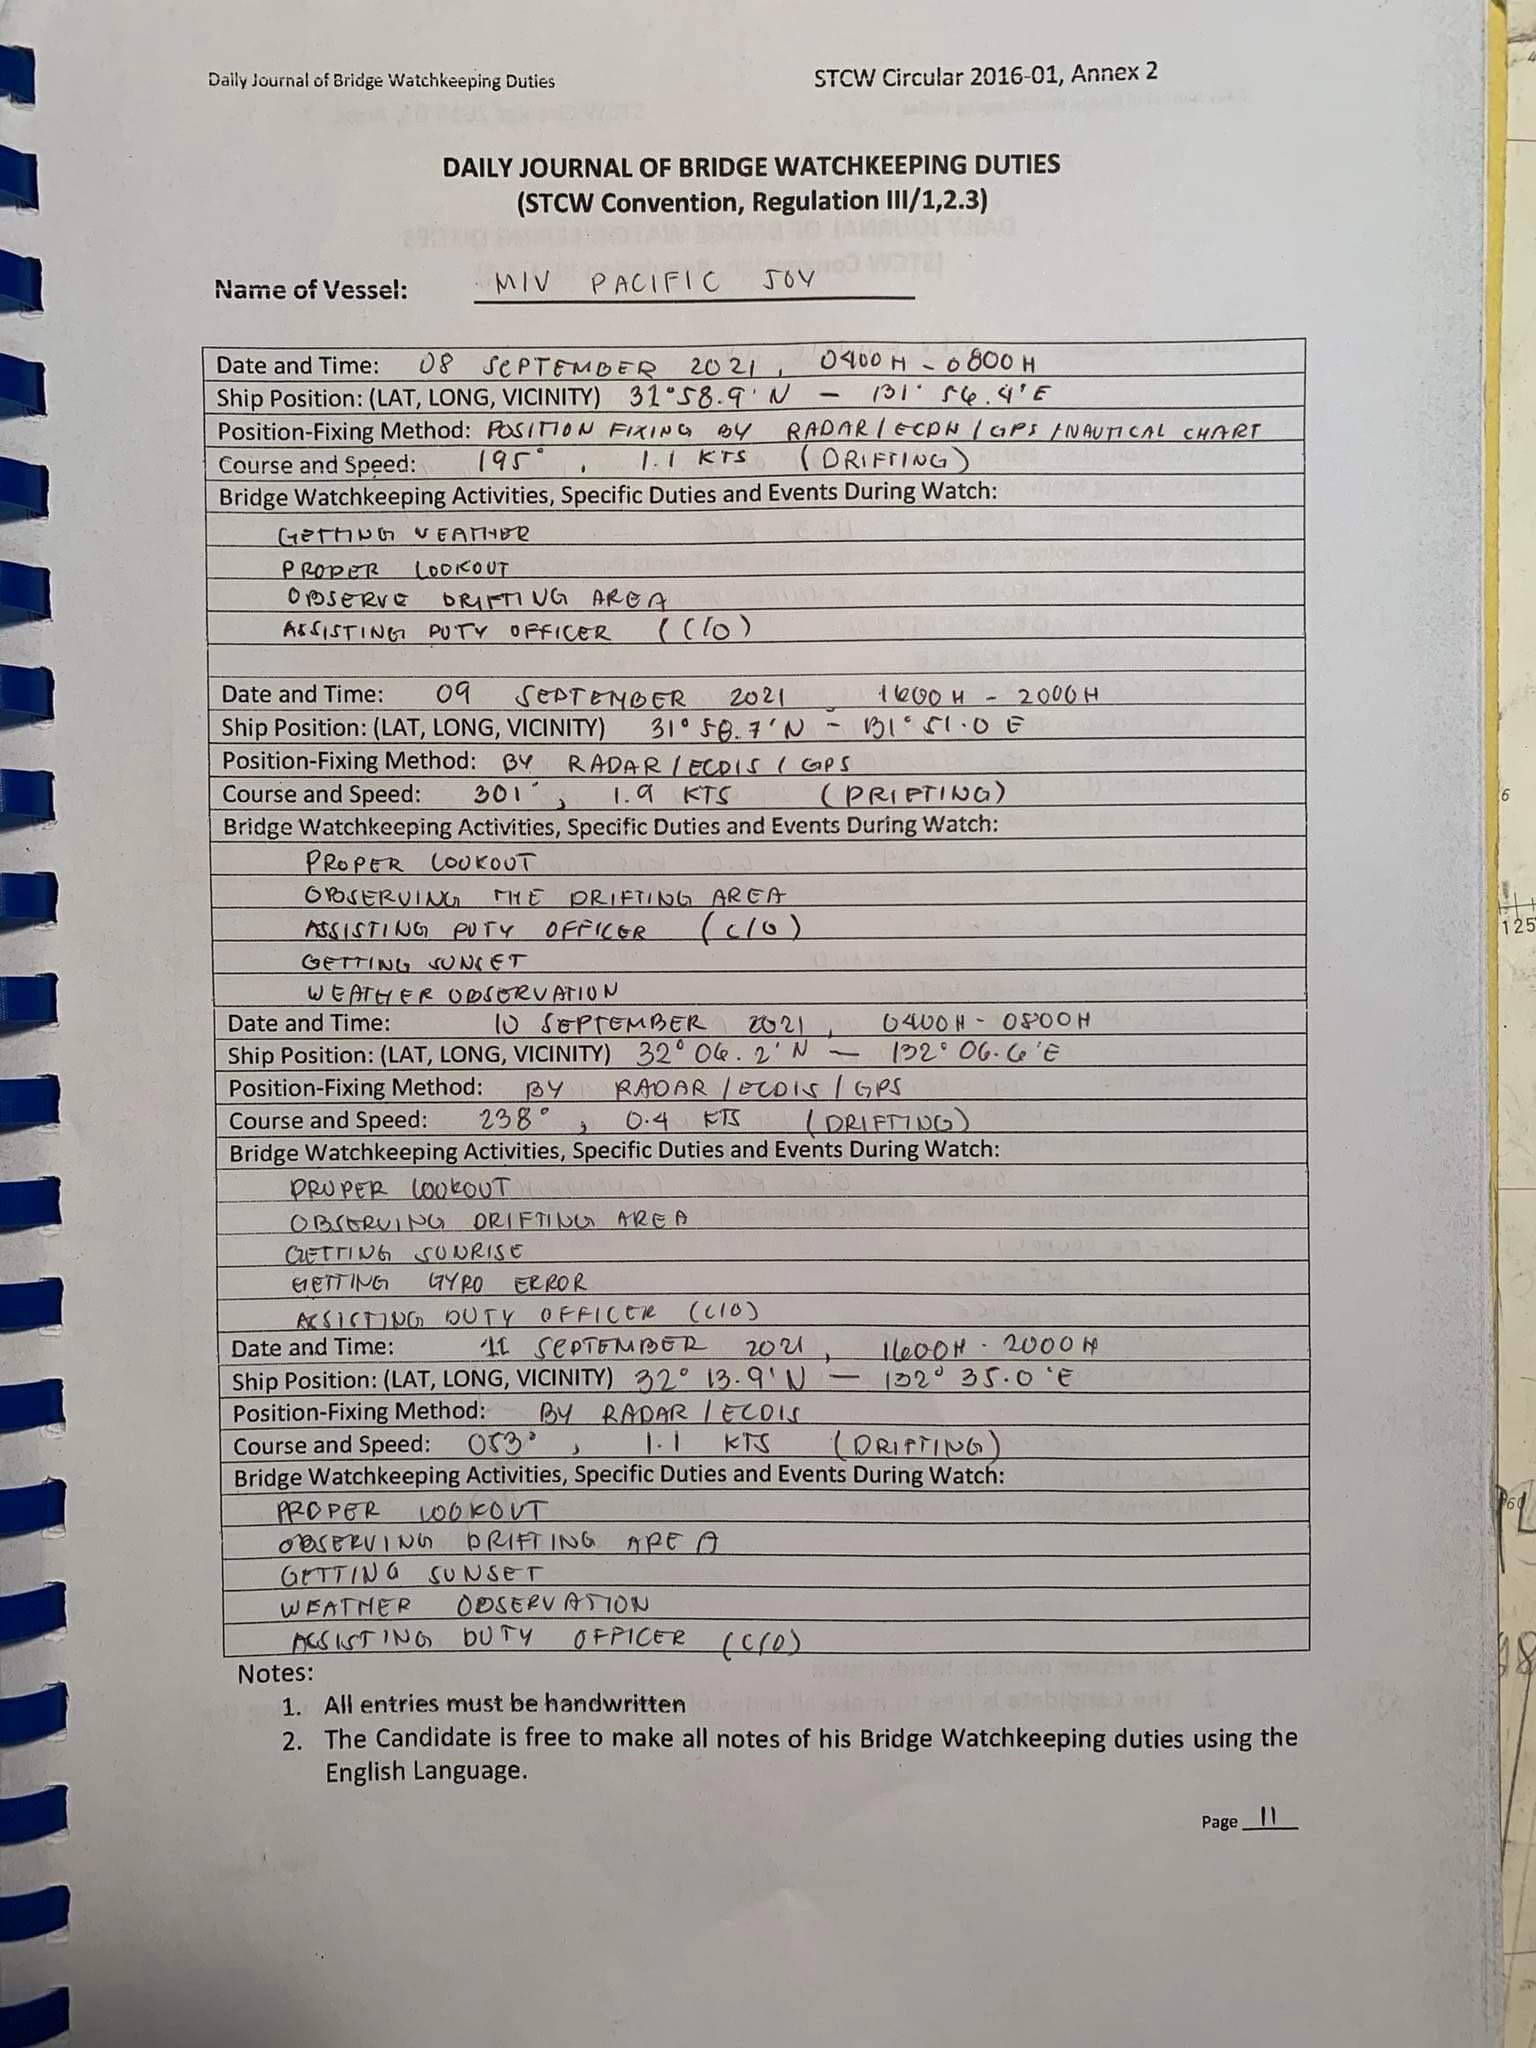 Daily Journal of Bridge Watchkeeping Duties STCW Circular 2016-01, Annex 2
DAILY JOURNAL OF BRIDGE WATCHKEEPING DUTIES
(STCW Convention, Regulation III/1,2.3)
Name of Vessel: M/V PACIFIC JOY
Date and Time: 08 SEPTEMBER 2021, 0400H - 0800H
Ship Position: (LAT, LONG, VICINITY) 31°58.9'N - 131° 54.4'E
Position-Fixing Method: POSITION FIXING BY RADAR/ECDN/GPS/NAUTICAL CHART
Course and Speed: 195°, 1.1 KTS (DRIFTING)
Bridge Watchkeeping Activities, Specific Duties and Events During Watch:
GETTING WEATHER
PROPER LOOKOUT
OBSERVE DRIFTING AREA
ASSISTING DUTY OFFICER (C/O)
Date and Time: 09 SEPTEMBER 2021 1600H - 2000H
Ship Position: (LAT, LONG, VICINITY) 31°58.7'N - 131°51.0 E
Position-Fixing Method: BY RADAR/ECDIS/GPS
Course and Speed: 301°, 1.9 KTS (DRIFTING)
Bridge Watchkeeping Activities, Specific Duties and Events During Watch:
PROPER LOOKOUT
OBSERVING THE DRIFTING AREA
ASSISTING DUTY OFFICER (C/O)
GETTING SUNSET
WEATHER OBSERVATION
Date and Time: 10 SEPTEMBER 2021, 0400H - 0800H
Ship Position: (LAT, LONG, VICINITY) 32° 06.2'N - 132° 06.6'E
Position-Fixing Method: BY RADAR/ECDIS/GPS
Course and Speed: 238°, 0.4 KTS (DRIFTING)
Bridge Watchkeeping Activities, Specific Duties and Events During Watch:
PROPER LOOKOUT
OBSERVING DRIFTING AREA
GETTING SUNRISE
GETTING GYRO ERROR
ASSISTING DUTY OFFICER (C/O)
Date and Time: 11 SEPTEMBER 2021, 1600H - 2000H
Ship Position: (LAT, LONG, VICINITY) 32° 13.9'N - 132° 35.0'E
Position-Fixing Method: BY RADAR/ECDIS
Course and Speed: 053°, 1.1 KTS (DRIFTING)
Bridge Watchkeeping Activities, Specific Duties and Events During Watch:
PROPER LOOKOUT
OBSERVING DRIFTING AREA
GETTING SUNSET
WEATHER OBSERVATION
ASSISTING DUTY OFFICER (C/O)
Notes:
1. All entries must be handwritten
2. The Candidate is free to make all notes of his Bridge Watchkeeping duties using the
English Language.
Page 11
125